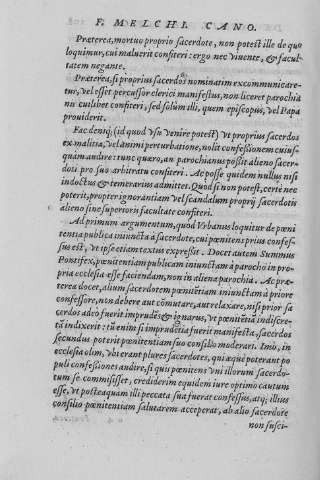 F. MELCHI. CANO.
Præterea, mortuo proprio sacerdote, non potest ille de quo
loquimur, cui maluerit confiteri: ergo nec viuente, & facul-
tatem negante.
Præterea, si proprius sacerdos nominatim excommunicare-
tur, vel esset percussor clerici manifestus, non liceret parochia
no cuilibet confiteri, sed solùm illi, quem episcopus, vel Papa
prouiderit.
Fac deniq; (id quod vsu venire potest) vt proprius sacerdos
ex malitia, vel animi perturbatione, nolit confessionem cuius-
quam audire: tunc quæro, an parochianus possit alieno sacer-
doti pro suo arbitratu confiteri. Ac posse quidem nullus nisi
indoctus & temerarius admittet. Quod si non potest, certè nec
poterit, propter ignorantiam vel scandalum proprij sacerdotis
alieno sine superioris facultate confiteri.
Ad primum argumentum, quod Vrbanus loquitur de pœni
tentia publica iniuncta à sacerdote, cui pœnitens prius confes-
sus est, vt ipse etiam textus expressit. Docet autem Summus
Pontifex, pœnitentiam publicam iniunctam à parocho in pro-
pria ecclesia esse faciendam, non in aliena parochia. Ac præ-
terea docet, alium sacerdotem pœnitentiam iniunctam à priore
confessore, non debere aut cōmutare, aut relaxare, nisi prior sa
cerdos adeò fuerit imprudēs & ignarus, vt pœnitētiā indiscre-
tā indixerit: tū enim si imprudētia fuerit manifesta, sacerdos
secundus poterit pœnitentiam suo consilio moderari. Imò, in
ecclesia olim, vbi erant plures sacerdotes, qui æquè poterant po
puli confessiones audire, si quis pœnitens vni illorum sacerdo-
tum se commisisset, crediderim equidem iure optimo cautum
esse, vt posteaquam illi peccata sua fuerat confessus, atq; illius
consilio pœnitentiam salutarem acceperat, ab alio sacerdote
non susci-